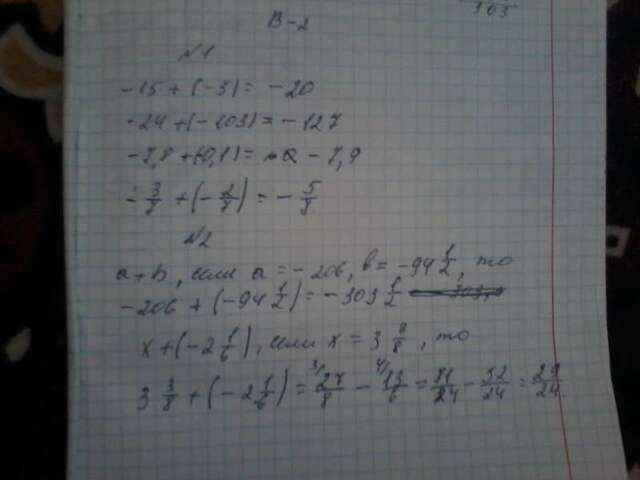 103
В-2
№1
-15 + (-5) = -20
-24 + (-103) = -127
-7,8 + (0,1) = - 7,9
- 3/8 + (- 2/8) = - 5/8
№2
a+b, если a = - 206, b = -94 1/2, то
-206 + (-94 1/2) = -303 1/2
x + (-2 1/6), если x = 3 3/8, то
3 3/8 + (-2 1/6) = 27/8 - 13/6 = 81/24 - 52/24 = 29/24